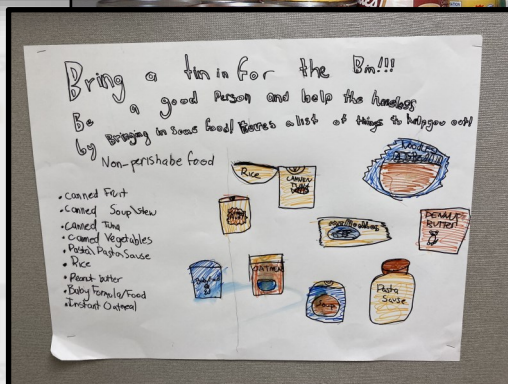 Bring a tin in for the Bin!!!
Be a good Person and help the homeless
by Bringing in some food! Heres a list of things to help you out!
Non-perishabe food
• canned Fruit
• canned Soup\stew
• canned Tuna
• canned Vegetables
• Pasta\Pasta Sause
• Rice
• Peanut butter
• Baby Formula/Food
• Instant Oatmeal
Rice
CANNEN
TUNA
PEANUT
BUTTER
OATMEAL
Soup
Pasta
Sause